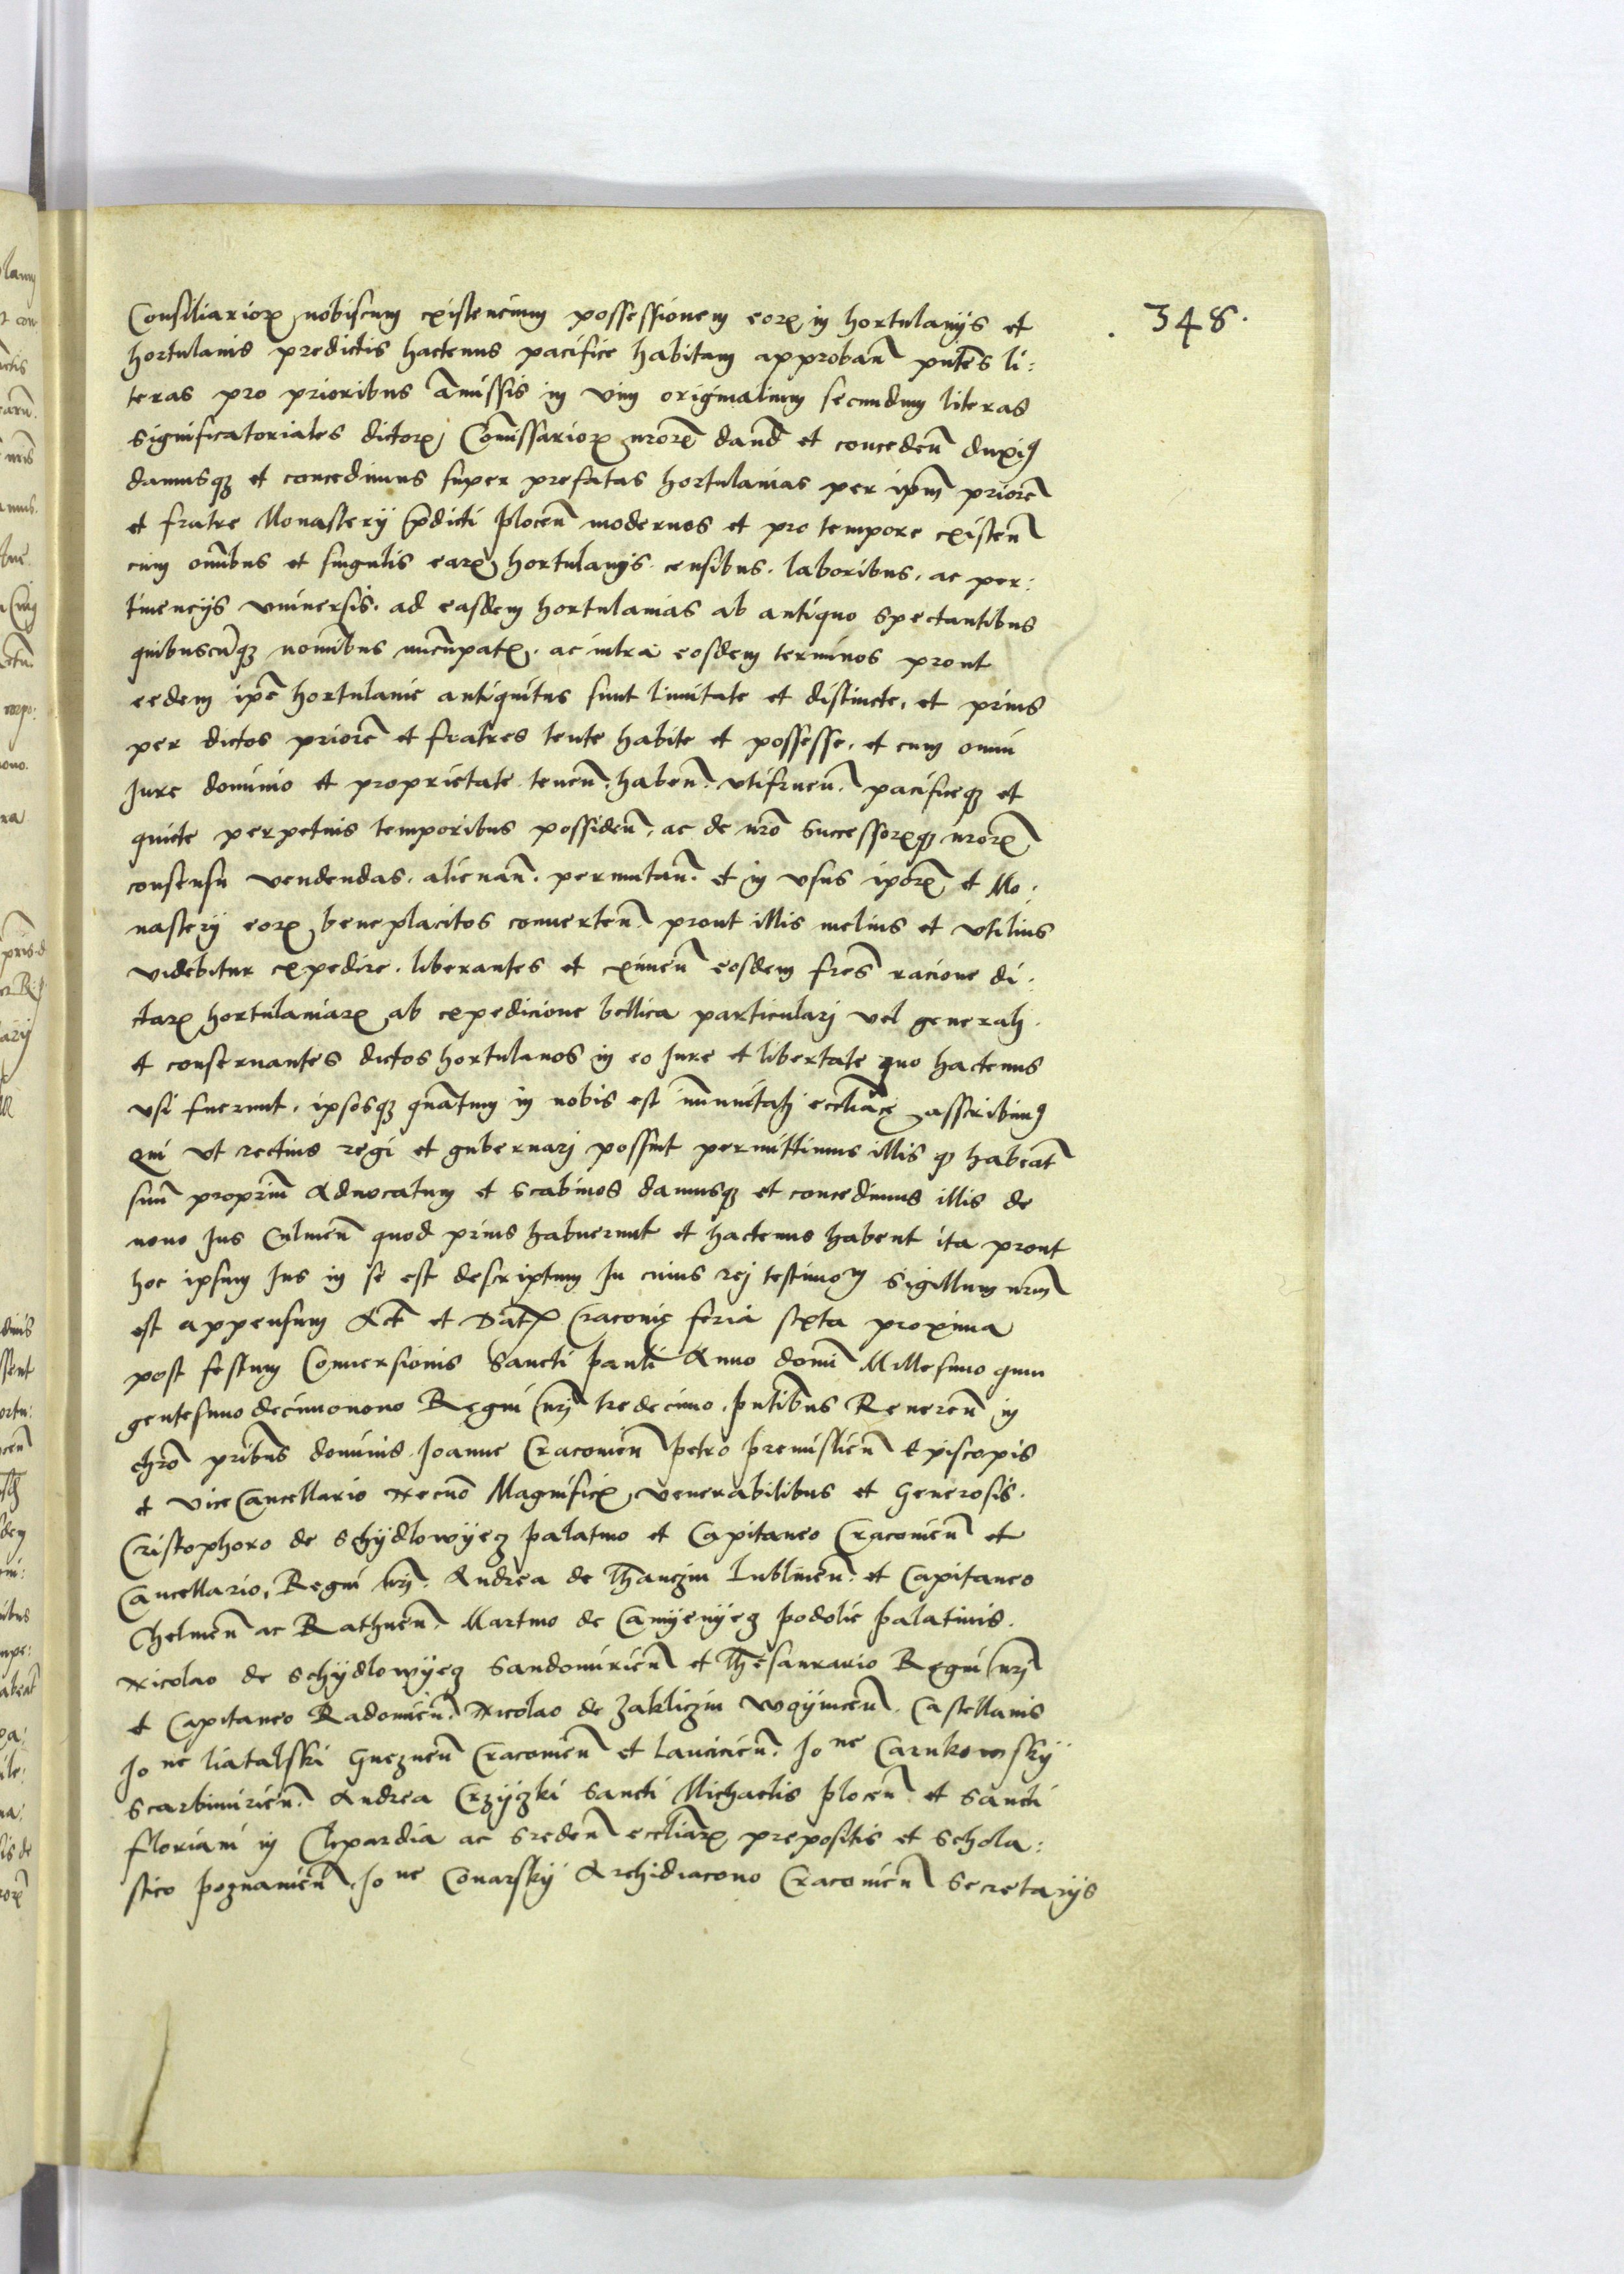 348.
Consiliarioꝝ nobiscum existencium possessionem eoꝝ in hortulanijs et
hortulanis predictis hactenus pacifice habitam approban̄ pñtes li:
teras pro prioribus amissis in vim originalium secundum literas
significatoriales dictoꝝ Com̄issarioꝝ nr̄oꝝ dand̄ et conceden̄ duxiꝰ
damusqꝫ et concedimus super prefatas hortulanias per ip̄m priorē
et fratre Monasterij p̄dicti plocen̄ modernos et pro tempore existen̄
cum om̄ibus et singulis eaꝝ hortulanijs. censibus. laboribus. ac per:
tinencijs vniuersis. ad easdem hortulanias ab antiquo spectantibus
quibuscūqꝫ nomībus nuncupatꝭ. ac intra eosdem terminos prout
eedem ip̄e hortulanie antiquitus sunt limitate et distincte, et prius
per dictos priorē et fratres tente habite et possesse, et cum omni
Jure dominio et proprietate tenen̄. haben̄. vtifruen̄. pacificeqꝫ et
quiete perpetuis temporibus possiden̄. ac de nr̄o Successoꝝqꝫ nr̄oꝝ
consensu vendendas. alienan̄. permutan̄. et in vsus ip̄oꝝ et Mo:
nasterij eoꝝ beneplacitos conuerten̄ prout illis melius et vtilius
videbitur expedire. liberantes et eximen̄ eosdem fr̄es racione di:
ctaꝝ hortulaniaꝝ ab expedicione bellica particularj vel generalj.
et conseruantes dictos hortulanos in eo Jure et libertate quo hactenus
vsi fuerunt. ipsosqꝫ quātum in nobis est im̄unitatj ecc̄liace asscribimꝰ
Qui vt rectius regi et gubernarj possint permittimus illis qꝫ habeāt
suū propriū Aduocatum et scabinos damusqꝫ et concedimus illis de
nouo Jus Culmen̄ quod prius habuerunt et hactenus habent ita prout
hoc ipsum Jus in se est descriptum In cuius rej testimonꝭ Sigillum nr̄m
est appensum Act̄ et Datꝭ Cracouie feria sexta proxima
post festum Conuersionis Sancti Pauli Anno domī Millesimo quin
gentesimo decimonono Regni nr̄j tredecimo. pñtibus Reueren̄ in
chr̄o pr̄ibus dominis. Joanne Cracouien̄ petro premislien̄ Episcopis
et viceCancellario Necnō Magnificꝭ, venerabilibus et Generosis.
Cristophoro de schydlowyecz palatino et Capitaneo Cracouien̄ et
Cancellario. Regni nr̄j. Andrea de Thanczin Lublinen̄. et Capitaneo
Chelmen̄ ac Rathnen̄. Martino de Camyenyecz podolie palatinis.
Nicolao de schydlowyecz Sandomirien̄ et Thesaurario Regni nr̄j
et Capitaneo Radomien̄. Nicolao de zakliczin woynicen̄. Castellanis
Jo ne liatalski Gneznen̄ Cracouien̄ et Lancicien̄. Jo ne Carnkowsky
scarbimirien̄. Andrea Crzyczki Sancti Michaelis plocen̄ et Sancti
floriani in Clepardia ac sreden̄ ecc̄liaꝝ prepositis et schola:
stico poznanien̄. Jo ne Conarsky Archidiacono Cracouien̄ Secretarijs